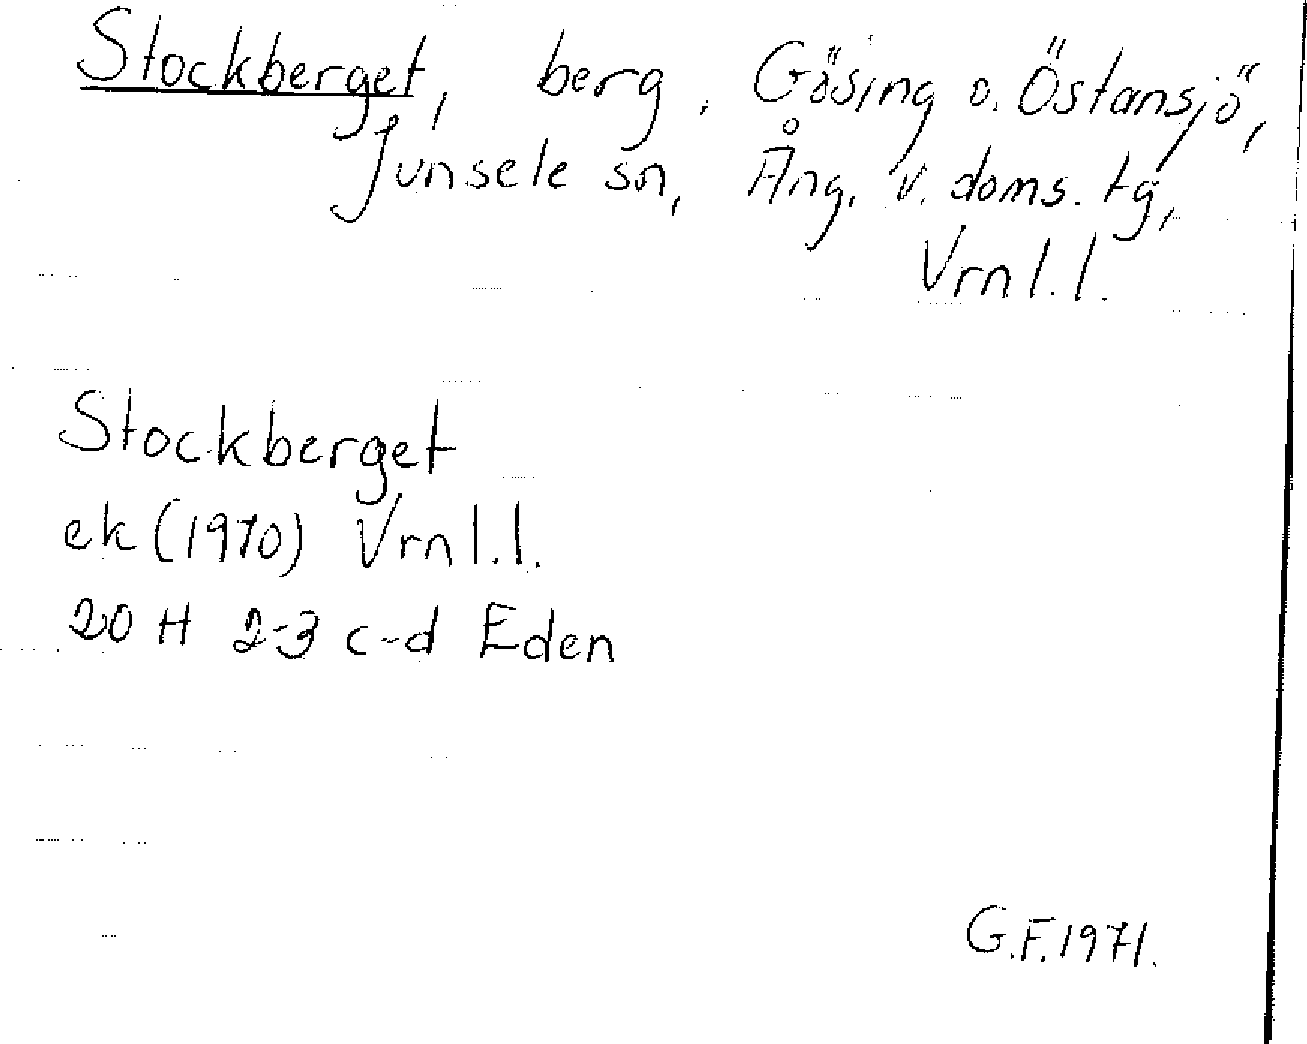 Stockberget, berg, Gösing o. Östansjö,
Junsele sn, Ång. v. doms. tg,
Vrnl.l.
Stockberget
ek (1970) Vrnl.l.
20 H 2-3 c-d Eden
G.F. 1971.